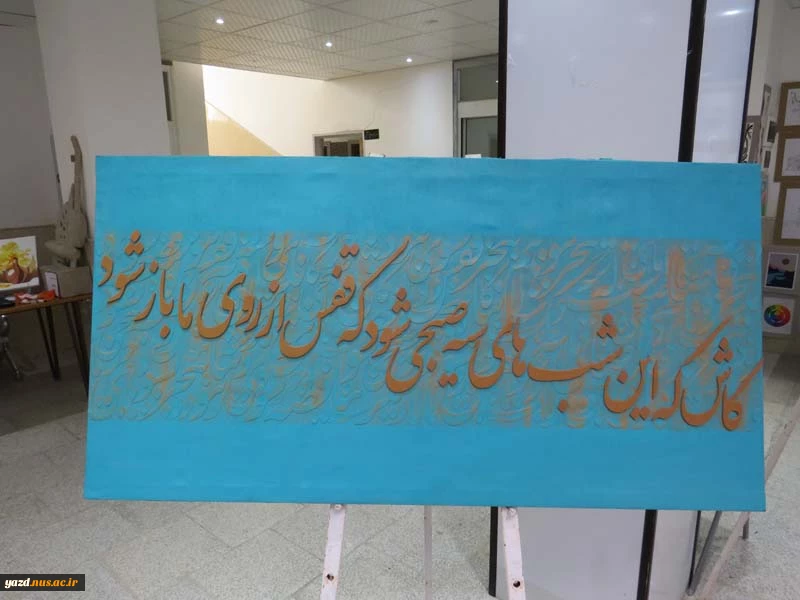 کاش که این شب های سیه صبحی شود که قفس از روی ما باز شود
yazd.nus.ac.ir